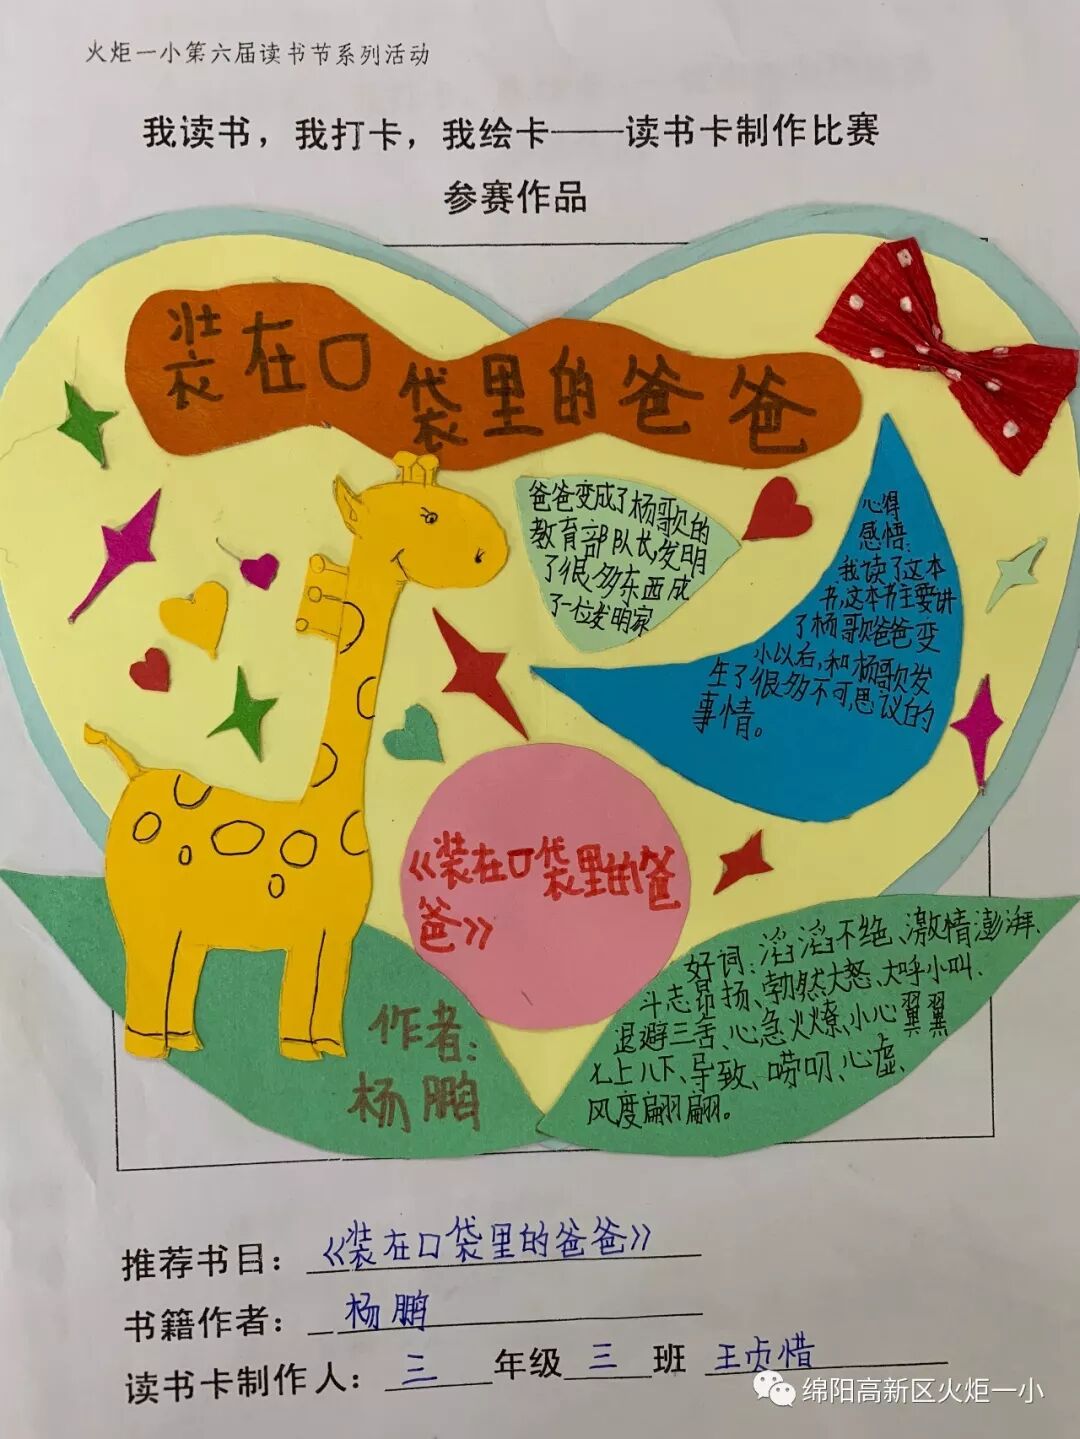 火炬一小第六届读书节系列活动
我读书，我打卡，我绘卡——读书卡制作比赛
参赛作品
装在口袋里的爸爸
爸爸变成了杨歌的
教育部队长，发明
了很多东西成
了一位发明家
心得
感悟：
我读了这本
书，这本书主要讲
了杨歌爸爸变
小以后，和杨歌发
生了很多不可思议的
事情。
《装在口袋里的爸
爸》
作者：
杨鹏
好词：滔滔不绝、激情澎湃、
斗志昂扬、勃然大怒、大呼小叫、
退避三舍、心急火燎、小心翼翼
七上八下、导致、唠叨、心虚、
风度翩翩。
推荐书目：《装在口袋里的爸爸》
书籍作者：杨鹏
读书卡制作人：三年级三班 王贞惜
绵阳高新区火炬一小